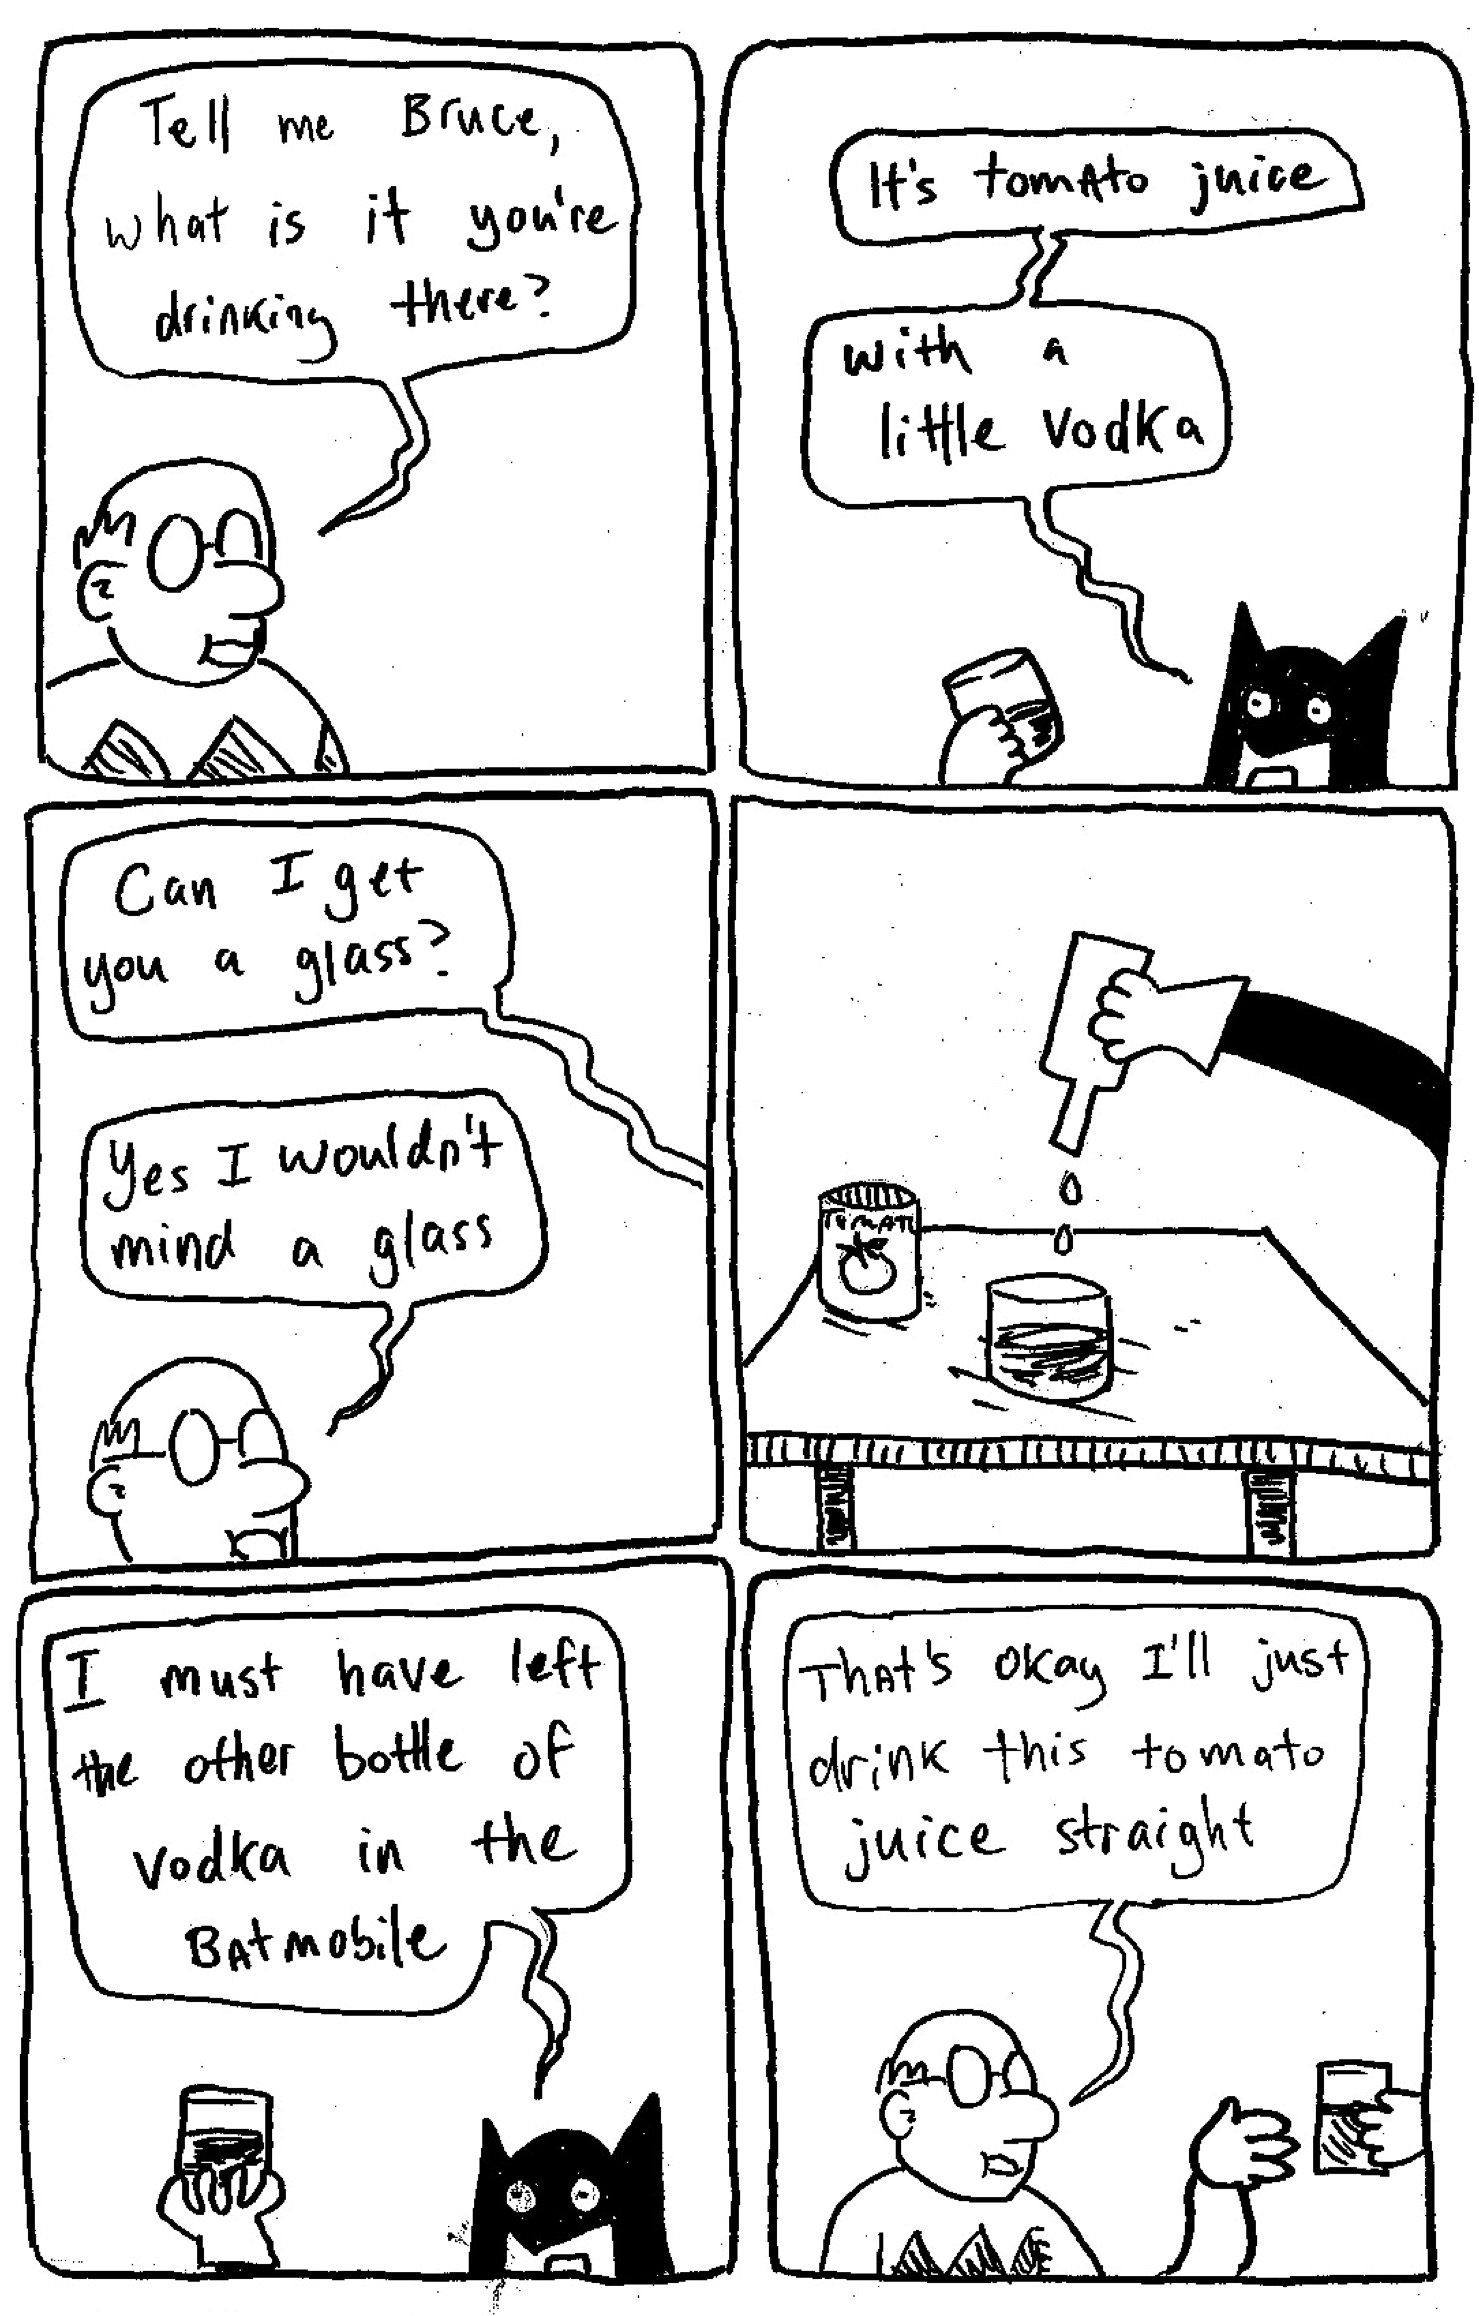 Tell me Bruce,
what is it you're
drinking there?
It's tomAto juice
with a
little vodka
Can I get
you a glass?
Yes I wouldn't
mind a glass
TomATo
I must have left
the other bottle of
vodka in the
BAtmobile
THAt's okay I'll just
drink this tomato
juice straight